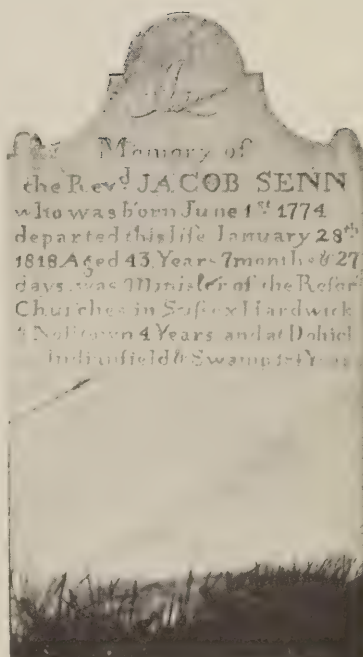 Memory of
the Revd. JACOB SENN
who was born June 1st 1774
departed this life January 28th
1818 Aged 43 Years 7 months & 27
days was Minister of the Refor
Churches in Sussex Hardwick
4 Years and at Tohick
Indianfield & Swamp